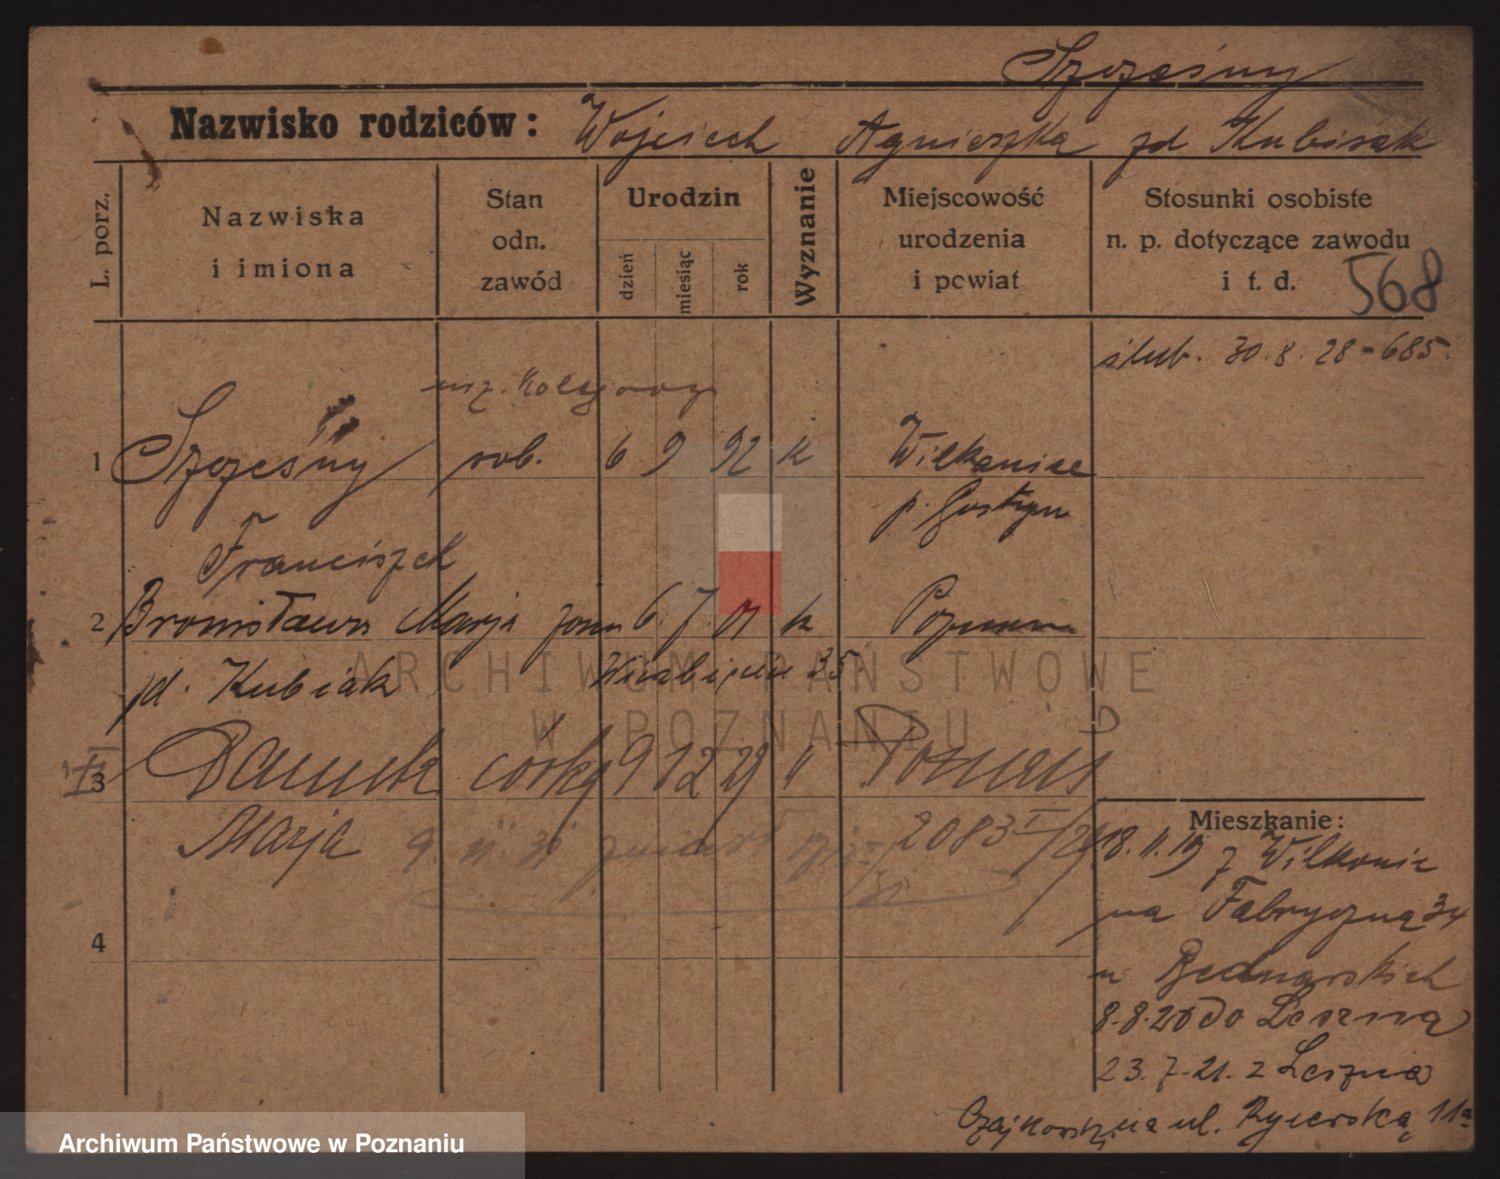 Szczęsny
Nazwisko rodziców: Wojciech Agnieszka zd Kubiak
L. porz.
Nazwiska
i imiona
Stan
odn.
zawód
Urodzin
dzień
miesiąc
rok
Wyznanie
Miejscowość
urodzenia
i powiat
Stosunki osobiste
n. p. dotyczące zawodu
i t. d.
568
ślub. 30.8.28-685.
1 Szczęsny rob. 6 9 92 k Wilkonice
p. Gostyn
Franciszek
2 Bronisława Marja żona 6. 7. 01 k Poznana
zd. Kubiak 35
3 Danuta córka 9 12 29 " Poznań
Marja 9. 2083
4
Mieszkanie:
18.11.19 z Wilkonic
na Fabryczną 34
u Bednarskich
8.8.20 do Leszna
23.7.21. z Leszna
na ul. Rycerską 11a
ARCHIWUM PAŃSTWOWE
W POZNANIU
Archiwum Państwowe w Poznaniu